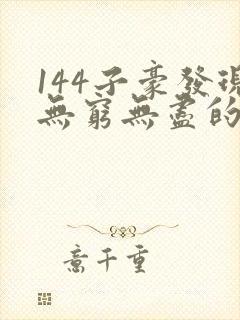 144子豪發現
無窮無盡的
意千重